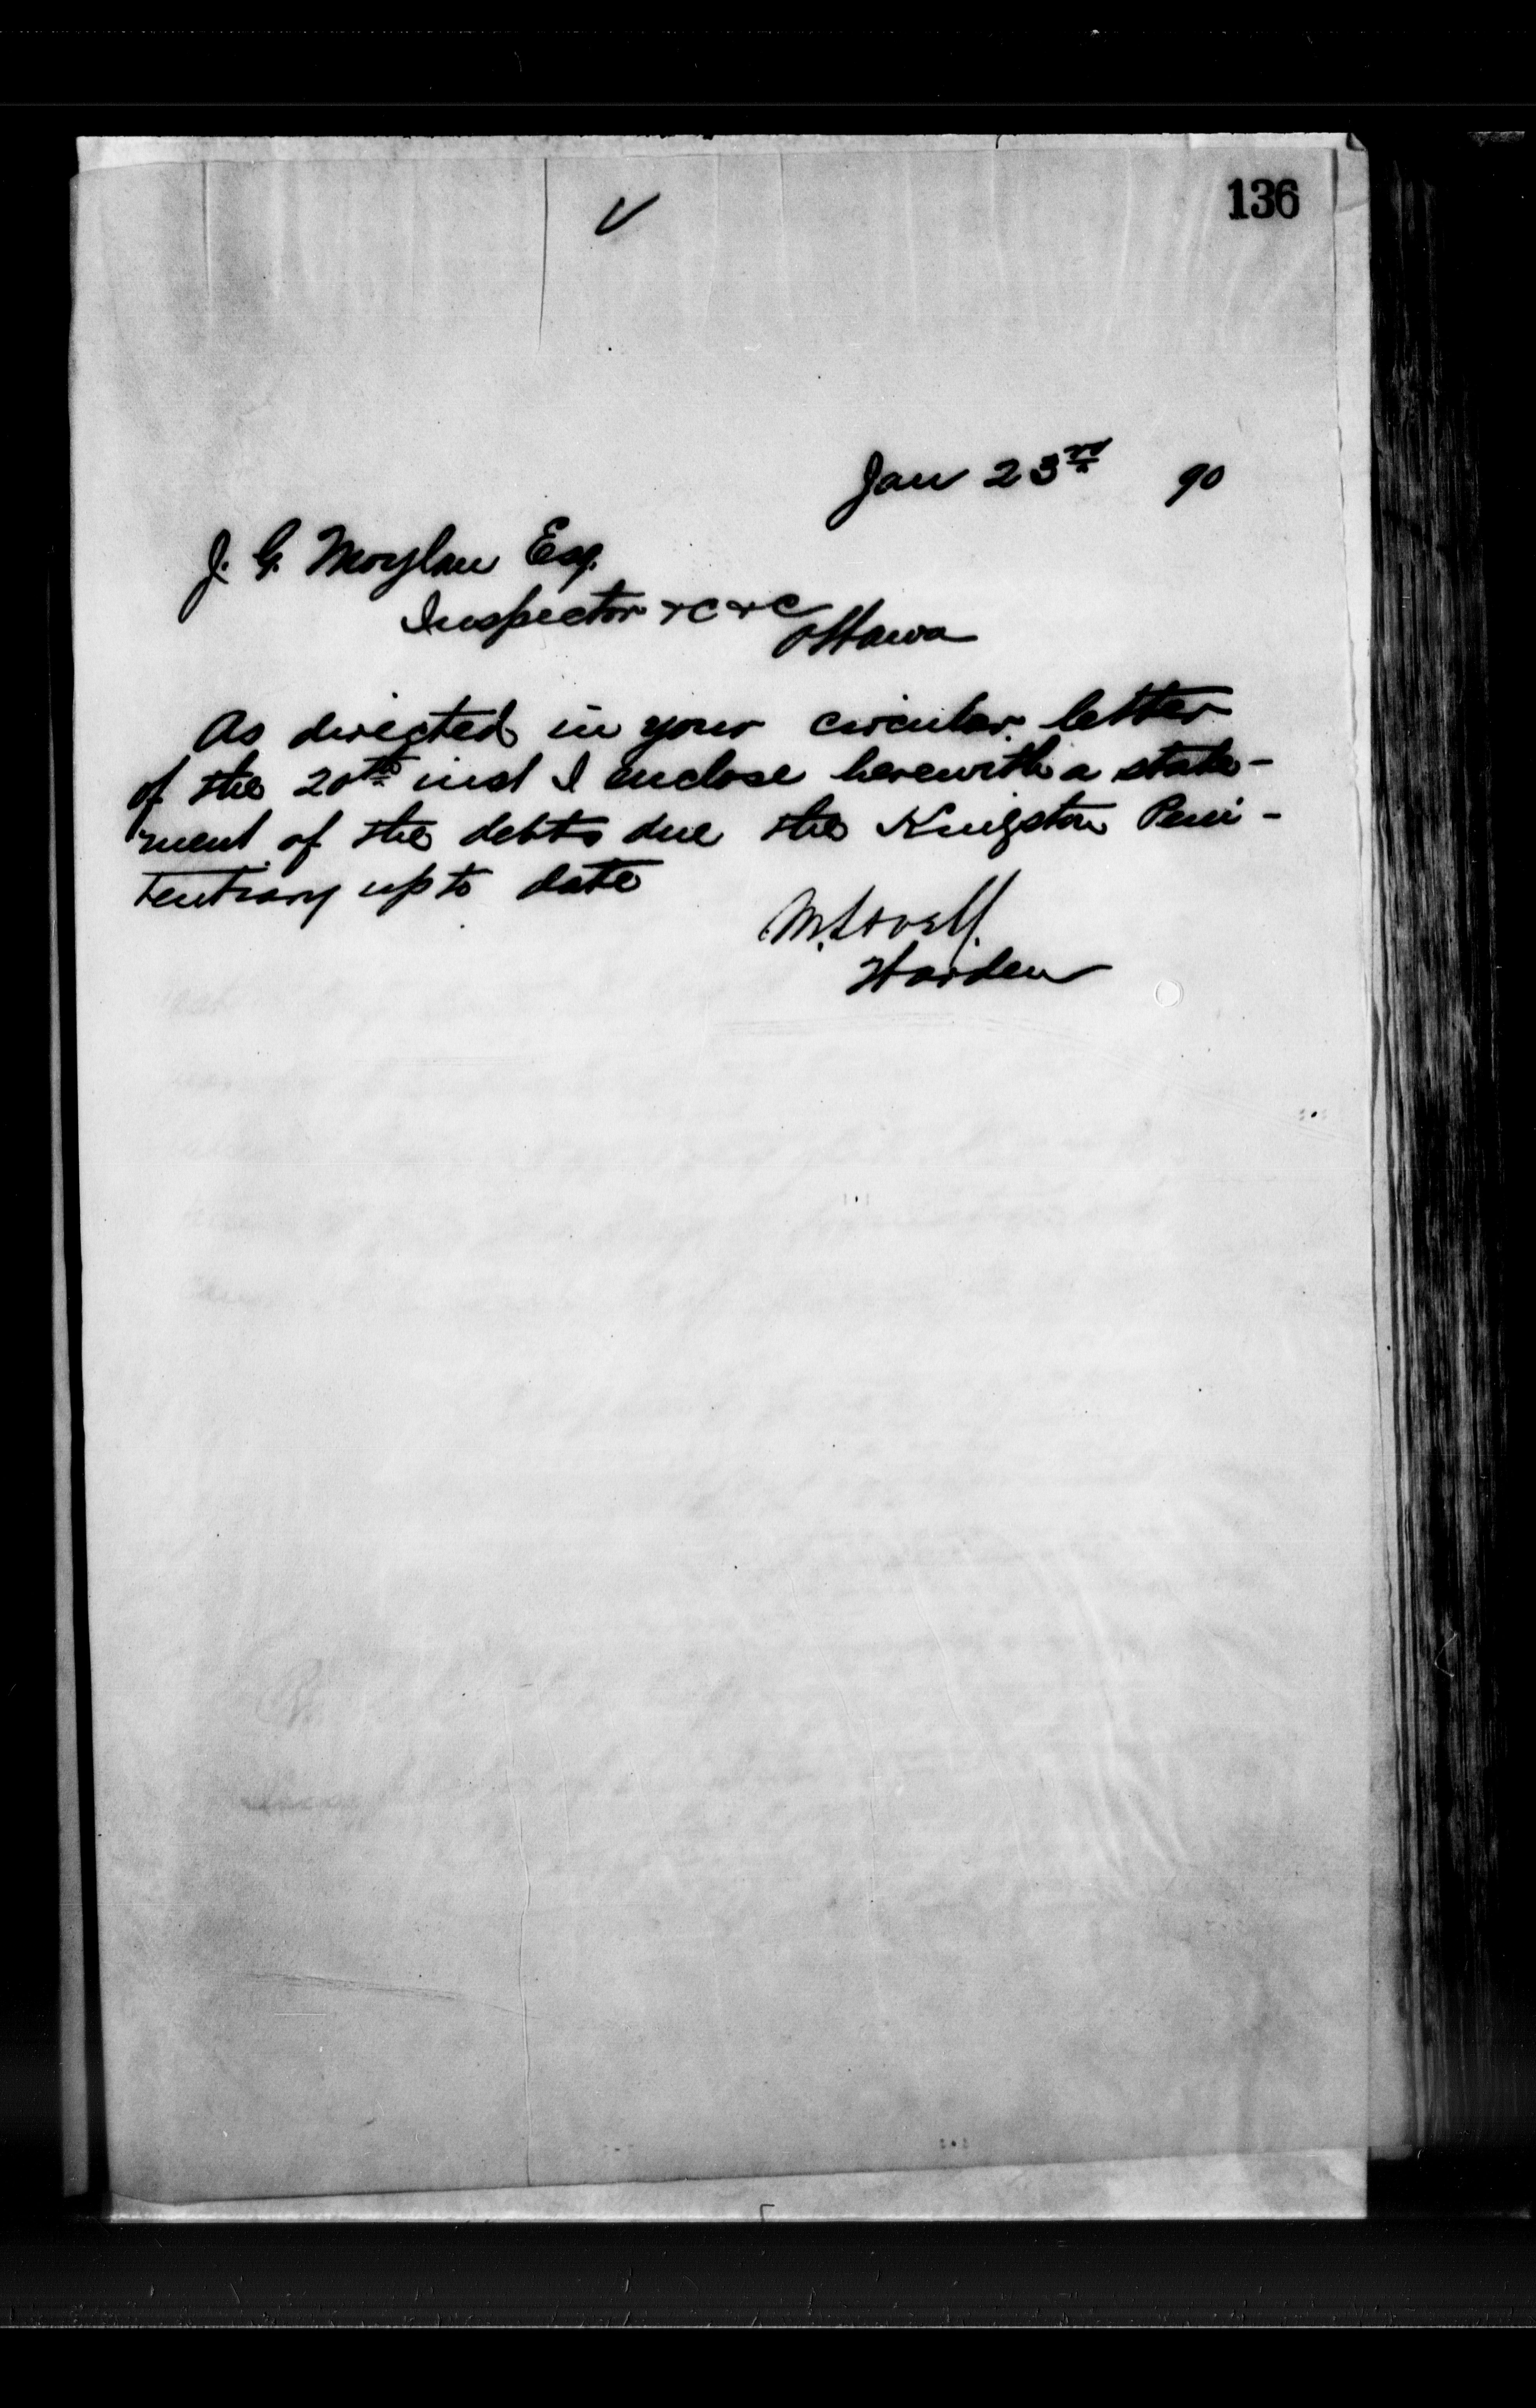 136
Jan 23rd 90
J. G. Moylan Esq.
Inspector &c &c
Ottawa
As directed in your circular letter
of the 20th inst I enclose herewith a state-
ment of the debts due the Kingston Peni-
tentiary up to date
M. Lavell.
Warden